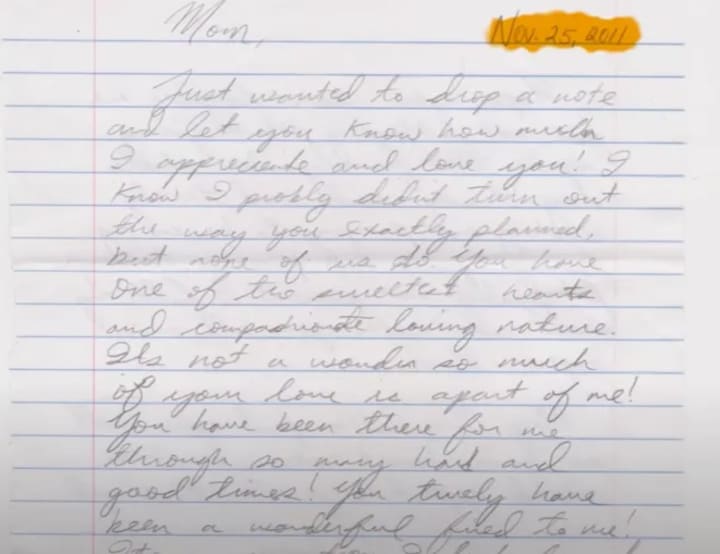 Mom,
Nov. 25, 2011
Just wanted to drop a note
and let you know how much
I appreciate and love you! I
know I probly didnt turn out
the way you exactly planned,
but none of us do. You have
one of the hearts
and compashionate loving nature.
Its not a wonder so much
of your love is apart of me!
You have been there for me
through so many hard and
good times! You truely have
been a wonderful fried to me!